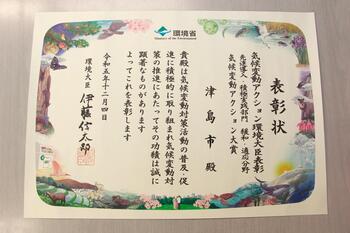 環境省
Ministry of the Environment
表彰状
気候変動アクション環境大臣表彰
先進導入・積極実践部門 緩和・適応分野
気候変動アクション大賞
津島市殿
貴殿は気候変動対策活動の普及・促
進に積極的に取り組まれ気候変動対
策の推進にあたってその功績は誠に
顕著なものがあります
よってこれを表彰します
令和五年十二月四日
環境大臣 伊藤信太郎